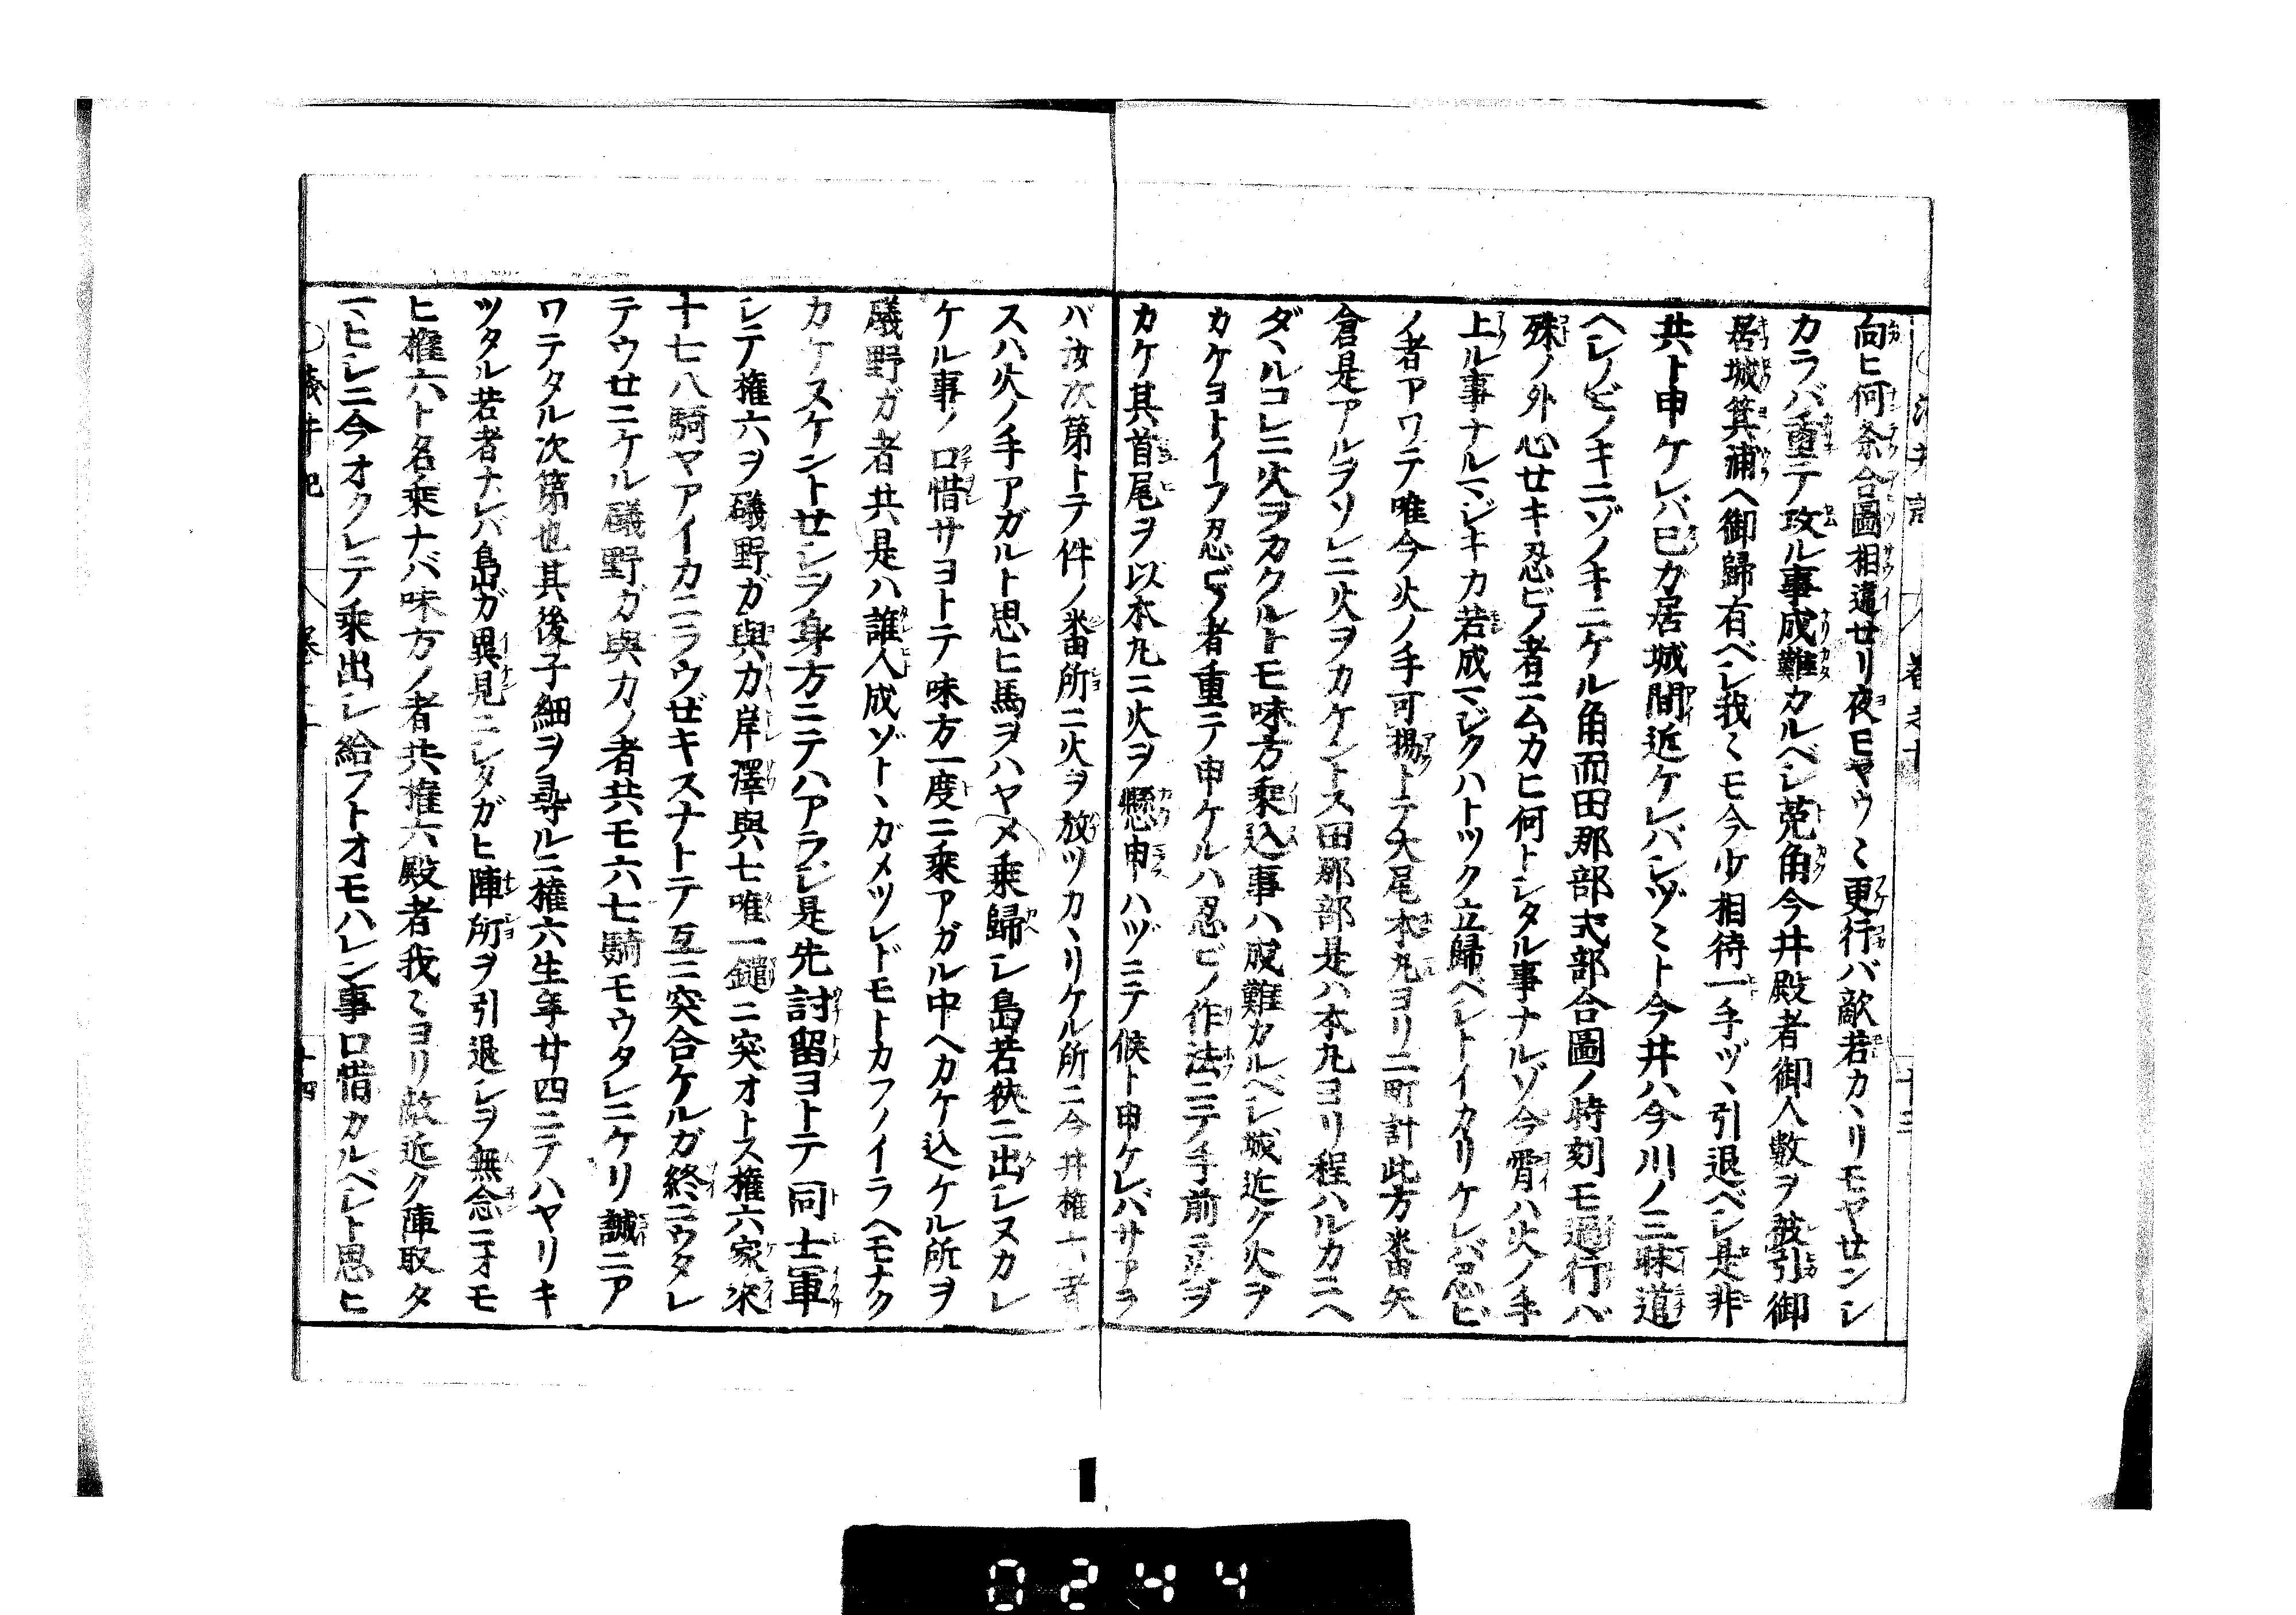 向ヒ何条合圖相違セリ夜モヤウ〻更行バ敵若カヽリモヤセンシ
カラバ重テ攻ル事成難カルベシ莵角今井殿者御人數ヲ被引御
居城箕浦ヘ御歸有ベシ我〻モ今少相待一手ヅヽ引退ベシ是非
共ト申ケレバ已カ居城間近ケレバシヅ〻ト今井ハ今川ノ三昧道
ヘシノビノキニゾノキニケル角而田那部式部合圖ノ時刻モ過行バ
殊ノ外心セキ忍ビノ者ニムカヒ何トシタル事ナルゾ今霄ハ火ノ手
上ル事ナルマジキカ若成マジクハトツク立歸ベシトイカリケレバ忍ビ
ノ者アワテ唯今火ノ手可揚トテ大尾本丸ヨリ二町計此方米番矢
倉是アルヲソレニ火ヲカケントス田那部是ハ本丸ヨリ程ハルカニヘ
ダヽルコレニ火ヲカクルトモ味方乗込事ハ成難カルベシ城近ク火ヲ
カケヨトイフ忍ビノ者重テ申ケルハ忍ビノ作法ニテ手前ニ火ヲ
カケ其首尾ヲ以本丸ニ火ヲ懸申ハヅニテ候ト申ケレバサアラ
バ汝次第トテ件ノ番所ニ火ヲ放ツカヽリケル所ニ今井權六者
スハ火ノ手アガルト思ヒ馬ヲハヤメ乗歸シ島若狹ニ出シヌカレ
ケル事ノ口惜サヨトテ味方一度ニ乗アガル中ヘカケ込ケル所ヲ
礒野ガ者共是ハ誰人成ゾトヽガメツレドモトカフノイラヘモナク
カケスケントセシヲ身方ニテハアラシ是先討留ヨトテ同士軍
シテ權六ヲ礒野ガ與力岸澤與七唯一鑓ニ突オトス權六家來
十七八騎ヤアイカニラウゼキスナトテ互ニ突合ケルガ終ニウタレ
テウセニケル礒野ガ與力ノ者共モ六七騎モウタレニケリ誠ニア
ワテタル次第也其後子細ヲ尋ルニ權六生年廿四ニテハヤリキ
ツタル若者ナレバ島ガ異見ニシタガヒ陣所ヲ引退シヲ無念ニオモ
ヒ權六ト名乗ナバ味方ノ者共權六殿者我〻ヨリ敵近ク陣取タ
マヒシニ今オクレテ乗出シ給フトオモハレン事口惜カルベシト思ヒ
十四
0244